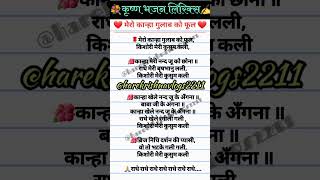 कृष्ण भजन लिरिक्स
मेरो कान्हा गुलाब को फूल
मेरो कान्हा गुलाब को फूल,
किशोरी मेरी कुसुम कली,
कान्हा मेरो नन्द जू को छोना ॥
राधे मेरी बृषभानु लली,
किशोरी मेरी कुसुम कली
@harekrishnavlogs2211
कान्हा खेले नन्द जू के अँगना ॥
बाबा जी के अँगना ॥
कान्हा खेले नन्द जू के अँगना
राधे खेले रंगीली गली,
किशोरी मेरी कुसुम कली
ब्रज निधि दर्शन की प्यासी,
किशोरी मेरी कुसुम कली
राधे राधे राधे राधे राधे राधे....